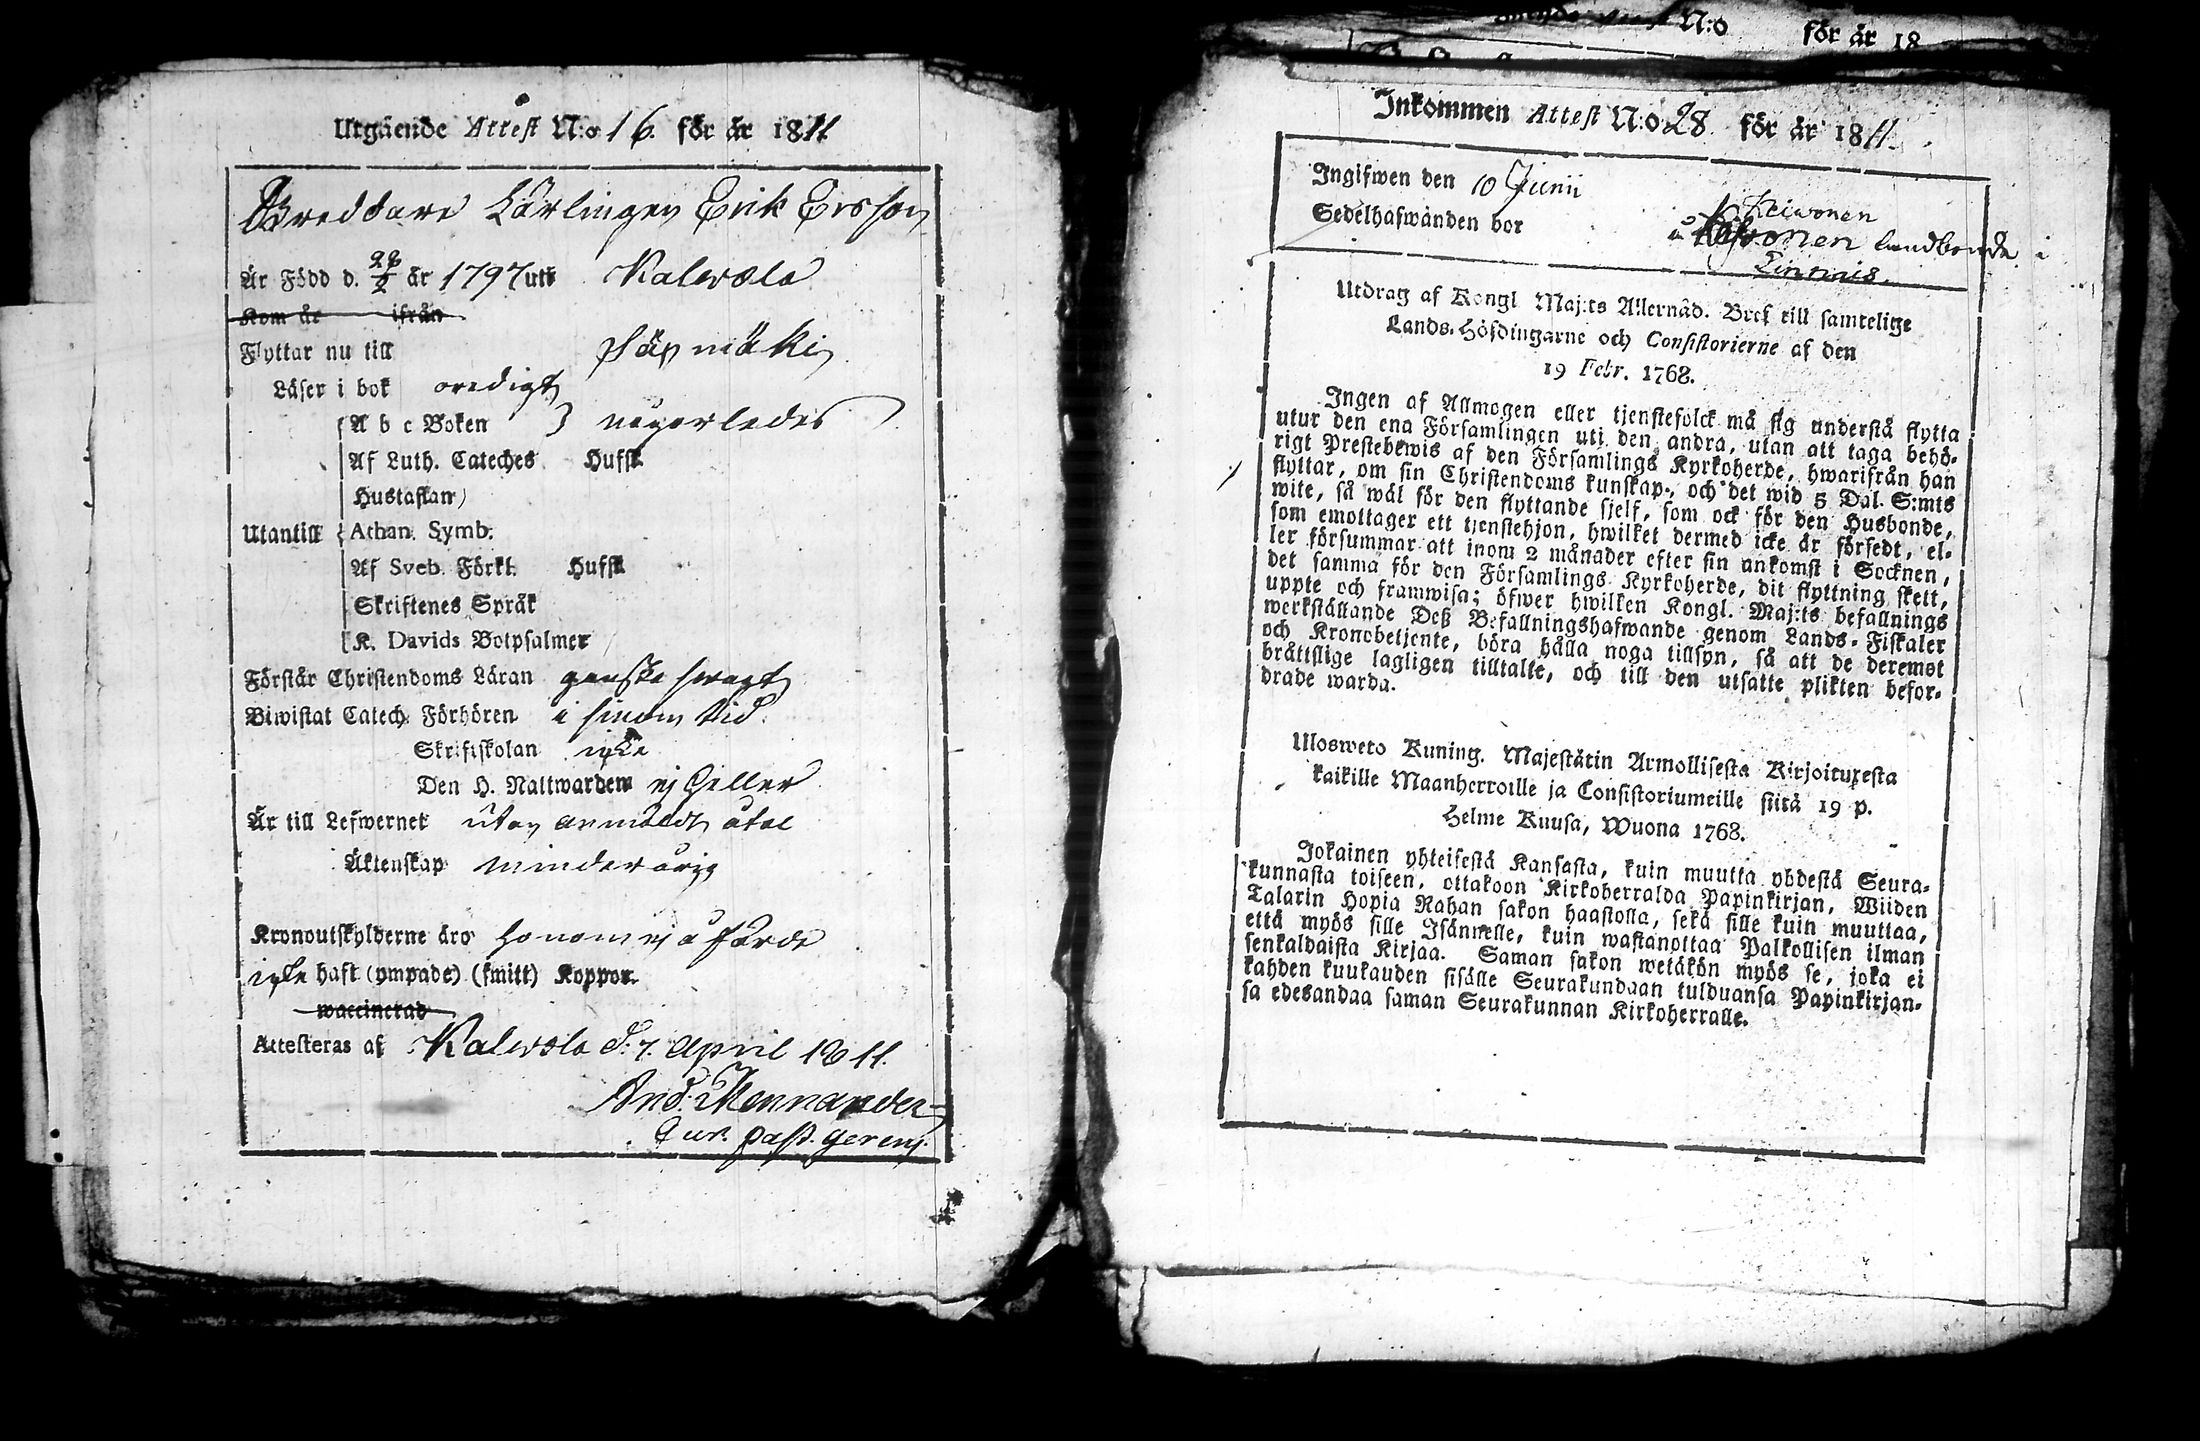 Utgående Attest N:o 16. för år 1811
Skreddare Lärlingen Erik Ersson
Är Född d. 28/2 år 1797 uti Kalwola
Kom år ifrån
Flyttar nu till Säxmäki
Läser i bok oredigt
A b c Boken } någorledes
Af Luth. Cateches Hufst.
Hustaflan
Utantill Athan. Symb.
Af Sveb. Förkl. Hufst
Skriftenes Språk
K. Davids Botpsalmer
Förstår Christendoms Läran ganska swagt
Biwistat Catech. Förhören i sinom tid
Skriftskolan icke
Den H. Nattwarden ej heller
Är till Lefwernet utan anmäldt åtal
Äktenskap minderårig
Kronoutskylderne äro honom ej åförde
icke haft (ympade) (smitt) Koppor.
waccinerad
Attesteras af Kalwola d. 7. April 1811.
And. Mennander
Cur. past. gerens.
N:o för år 18
Inkommen Attest N:o 28 för år 1811.
Ingifwen den 10 Junii
Keiwonen
Sedelhafwanden bor å landbonde i
Linnais.
Utdrag af Kongl. Maj:ts Allernåd. Bref till samtelige
Lands-Höfdingarne och Consistorierne af den
19 Febr. 1768.
Ingen af Allmogen eller tjenstefolck må sig understå flytta
utur den ena Församlingen uti den andra, utan att taga behö-
rigt Prestebewis af den Församlings Kyrkoherde, hwarifrån han
flyttar, om sin Christendoms kunskap, och det wid 5 Dal. S:mts
wite, så wäl för den flyttande sjelf, som ock för den Husbonde,
som emottager ett tjenstehjon, hwilket dermed icke är försedt, el-
ler försummar att inom 2 månader efter sin ankomst i Socknen,
det samma för den Församlings Kyrkoherde, dit flyttning skett,
uppte och framwisa; öfwer hwilken Kongl. Maj:ts befallnings
werkställande Deß Befallningshafwande genom Lands-Fiskaler
och Kronobetjente, böra hålla noga tillsyn, så att de deremot
bråttslige lagligen tilltalte, och till den utsatte plikten befor-
drade warda.
Ulosweto Kuning. Majestätin Armollisesta Kirjoituxesta
kaikille Maanherroille ja Consistoriumeille siitä 19 p.
Helme Kuusa, Wuona 1768.
Jokainen yhteisestä Kansasta, kuin muutta yhdestä Seura-
kunnasta toiseen, ottakoon Kirkoherralda Papinkirjan, Wiiden
Talarin Hopia Rahan sakon haastolla, sekä sille kuin muuttaa,
että myös sille Isännelle, kuin wastanottaa Palkollisen ilman
senkaldaista Kirjaa. Saman sakon wetäkön myös se, joka ei
kahden kuukauden sisälle Seurakundaan tulduansa Papinkirjan-
sa edesandaa saman Seurakunnan Kirkoherralle.